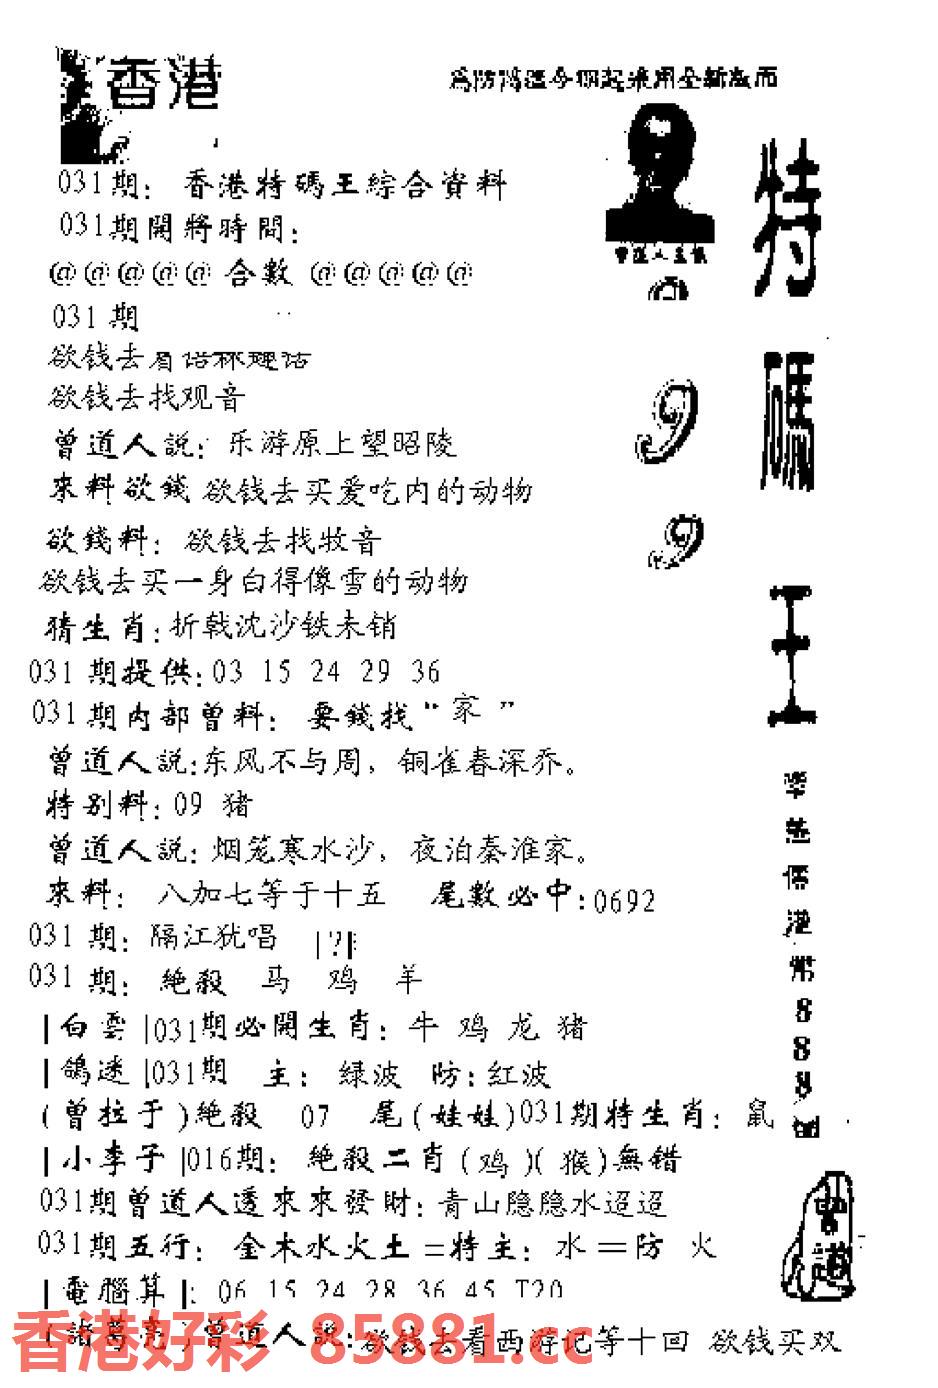 香港
031期：香港特碼王綜合資料
031期開將時間：
@@@@@合數@@@@@
031期
欲钱去
欲钱去找观音
曾道人説：乐游原上望昭陵
來料欲錢 欲钱去买爱吃内的动物
欲錢料：欲钱去找牧音
欲钱去买一身白得像雪的动物
猜生肖：折戟沈沙铁未销
031期提供：03 15 24 29 36
031期内部曾料：要錢找“家”
曾道人説：东风不与周，铜雀春深乔。
特别料：09 猪
曾道人説：烟笼寒水沙，夜泊秦淮家。
來料：八加七等于十五 尾數必中：0692
031期：隔江犹唱 |?|
031期：絶殺 马 鸡 羊
|白雲|031期必開生肖：牛 鸡 龙 猪
|鴿迷|031期 主：绿波 防：红波
(曾拉于)絶殺 07 尾(娃娃)031期特生肖：鼠
|小李子|016期：絶殺二肖(鸡)(猴)無錯
031期曾道人透來來發財：青山隐隐水迢迢
031期五行：金木水火土=特主：水=防 火
|電腦算|：06 15 24 28 36 45 T20
(諸葛亮)曾道人説：欲钱去看西游记等十回 欲钱买双
香港好彩 85881.cc
特
碼
王
港
幣
8
8
8
9
9
曾道